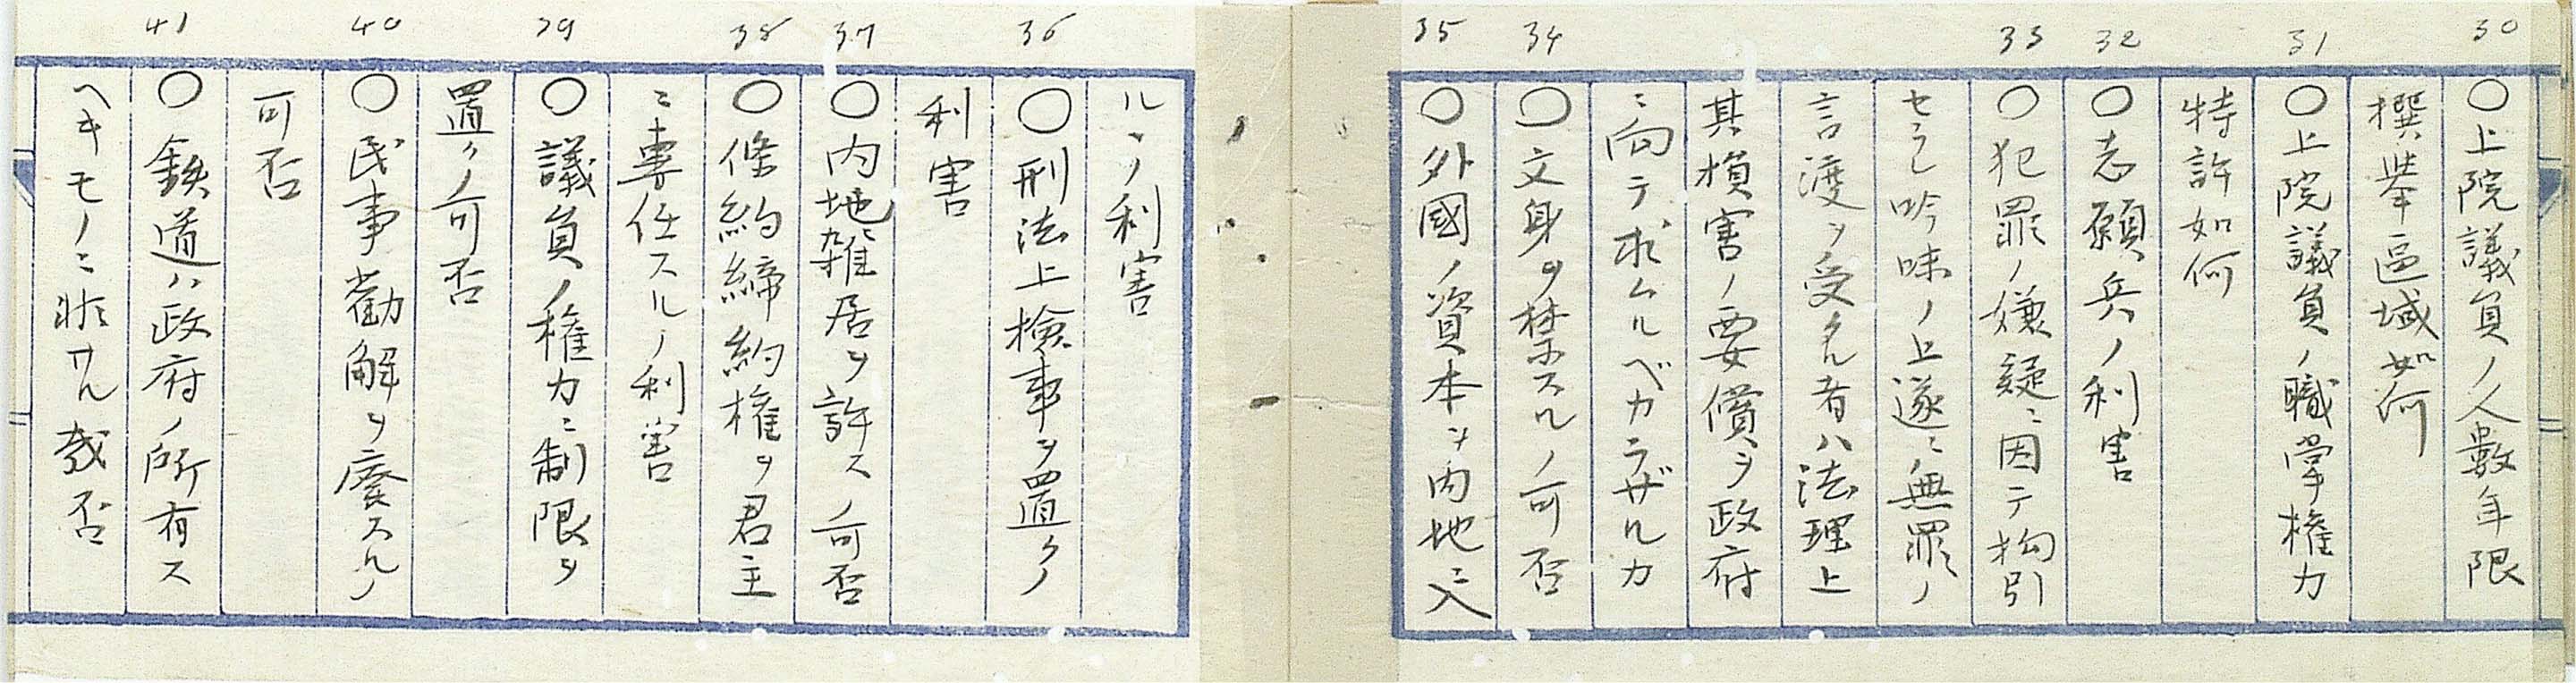 30
○上院議員ノ人數年限
撰擧區域如何
31
○上院議員ノ職掌權力
特許如何
32
○志願兵ノ利害
33
○犯罪ノ嫌疑ニ因テ拘引
セラレ吟味ノ上遂ニ無罪ノ
言渡ヲ受タル者ハ法理上
其損害ノ要償ヲ政府
ニ向テ求ムルベカラザルカ
34
○文身ヲ禁スルノ可否
35
○外國ノ資本ヲ内地ニ入
ルヽノ利害
36
○刑法上檢事ヲ置クノ
利害
37
○内地雑居ヲ許スノ可否
38
○條約締約權ヲ君主
ニ專任スルノ利害
39
○議員ノ権力ニ制限ヲ
置クノ可否
40
○民事勸解ヲ廢スルノ
可否
41
○鉄道ハ政府ノ所有ス
ヘキモノニ非サル哉否